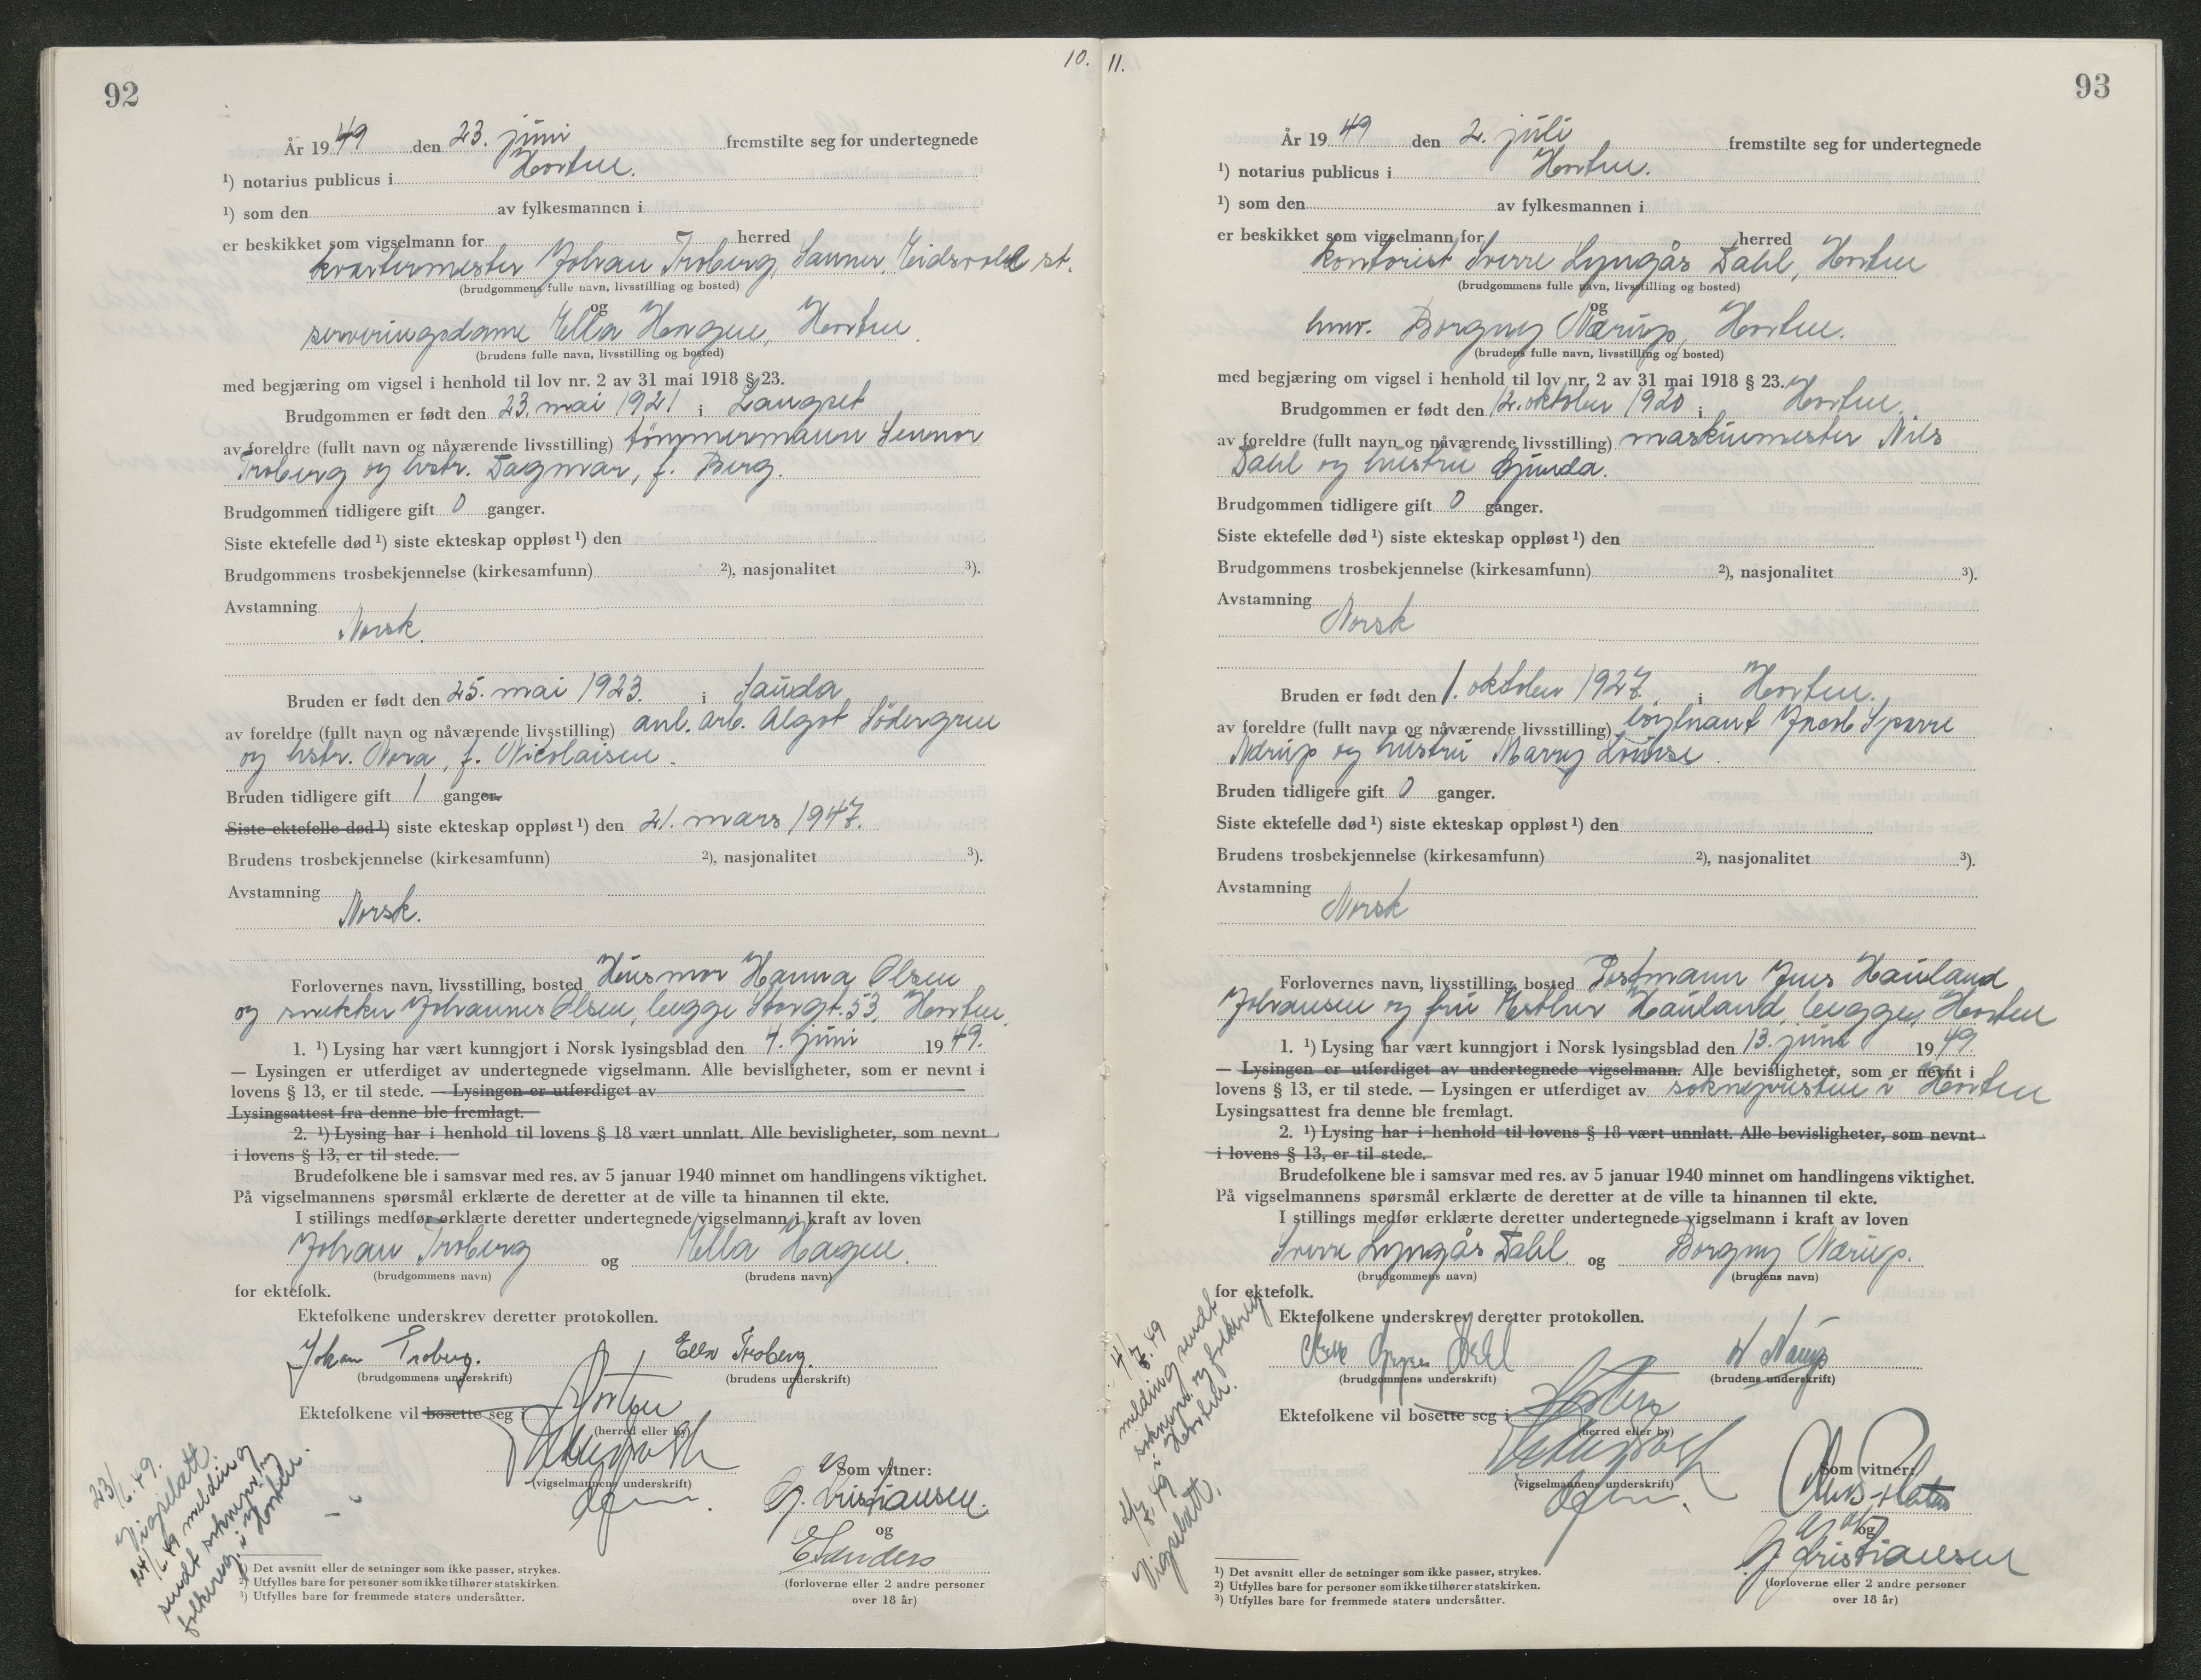 92
10.
År 19 49 den 23. juni fremstilte seg for undertegnede
¹) notarius publicus i Horten.
¹) som den av fylkesmannen i
er beskikket som vigselmann for herred
kvartermester Johan Troberg, Sanner, Eidsvoll st.
(brudgommens fulle navn, livsstilling og bosted)
og
serveringsdame Ella Hagen, Horten.
(brudens fulle navn, livsstilling og bosted)
med begjæring om vigsel i henhold til lov nr. 2 av 31 mai 1918 § 23.
Brudgommen er født den 23. mai 1921 i Langset
av foreldre (fullt navn og nåværende livsstilling) tømmermann Sennor
Troberg og hstr. Dagmar, f. Berg.
Brudgommen tidligere gift 0 ganger.
Siste ektefelle død ¹) siste ekteskap oppløst ¹) den
Brudgommens trosbekjennelse (kirkesamfunn) ²), nasjonalitet ³).
Avstamning
Norsk.
Bruden er født den 25. mai 1923. i Sauda
av foreldre (fullt navn og nåværende livsstilling) anl. arb. Algot Södergren
og hstr. Nora, f. Nicolaisen.
Bruden tidligere gift 1 ganger.
Siste ektefelle død ¹) siste ekteskap oppløst ¹) den 21. mars 1947.
Brudens trosbekjennelse (kirkesamfunn) ²), nasjonalitet ³).
Avstamning
Norsk.
Forlovernes navn, livsstilling, bosted Husmor Hanna Olsen
og snekker Johannes Olsen, begge Storgt. 53, Horten.
1. ¹) Lysing har vært kunngjort i Norsk lysingsblad den 4. juni 19 49.
— Lysingen er utferdiget av undertegnede vigselmann. Alle bevisligheter, som er nevnt i
lovens § 13, er til stede. — Lysingen er utferdiget av
Lysingsattest fra denne ble fremlagt.
2. ¹) Lysing har i henhold til lovens § 18 vært unnlatt. Alle bevisligheter, som nevnt
i lovens § 13, er til stede.
Brudefolkene ble i samsvar med res. av 5 januar 1940 minnet om handlingens viktighet.
På vigselmannens spørsmål erklærte de deretter at de ville ta hinannen til ekte.
I stillings medfør erklærte deretter undertegnede vigselmann i kraft av loven
Johan Troberg og Ella Hagen.
(brudgommens navn) (brudens navn)
for ektefolk.
Ektefolkene underskrev deretter protokollen.
Johan Troberg. Ella Troberg.
(brudgommens underskrift) (brudens underskrift)
Ektefolkene vil bosette seg i Horten
(herred eller by)
(vigselmannens underskrift)
Som vitner:
G. Kristiansen.
og
E Sanders
(forloverne eller 2 andre personer
over 18 år)
23/6. 49.
Vigselatt.
24/6. 49 melding
sendt soknepr. og
folkereg. i Horten.
¹) Det avsnitt eller de setninger som ikke passer, strykes.
²) Utfylles bare for personer som ikke tilhører statskirken.
³) Utfylles bare for fremmede staters undersåtter.
11.
93
År 19 49 den 2. juli fremstilte seg for undertegnede
¹) notarius publicus i Horten.
¹) som den av fylkesmannen i
er beskikket som vigselmann for herred
kontorist Sverre Lyngås Dahl, Horten
(brudgommens fulle navn, livsstilling og bosted)
og
hmv. Borgny Nærup, Horten.
(brudens fulle navn, livsstilling og bosted)
med begjæring om vigsel i henhold til lov nr. 2 av 31 mai 1918 § 23.
Brudgommen er født den 12. oktober 1920 i Horten.
av foreldre (fullt navn og nåværende livsstilling) maskinmester Nils
Dahl og hustru Gunda.
Brudgommen tidligere gift 0 ganger.
Siste ektefelle død ¹) siste ekteskap oppløst ¹) den
Brudgommens trosbekjennelse (kirkesamfunn) ²), nasjonalitet ³).
Avstamning
Norsk
Bruden er født den 1. oktober 1927. i Horten.
av foreldre (fullt navn og nåværende livsstilling) løytnant Jacob Sparre
Nærup og hustru Marry Louise.
Bruden tidligere gift 0 ganger.
Siste ektefelle død ¹) siste ekteskap oppløst ¹) den
Brudens trosbekjennelse (kirkesamfunn) ²), nasjonalitet ³).
Avstamning
Norsk
Forlovernes navn, livsstilling, bosted Postmann Jens Hauland
Johansen og fru Esther Hauland, begge, Horten
1. ¹) Lysing har vært kunngjort i Norsk lysingsblad den 13. juni 19 49.
— Lysingen er utferdiget av undertegnede vigselmann. Alle bevisligheter, som er nevnt i
lovens § 13, er til stede. — Lysingen er utferdiget av soknepresten i Horten
Lysingsattest fra denne ble fremlagt.
2. ¹) Lysing har i henhold til lovens § 18 vært unnlatt. Alle bevisligheter, som nevnt
i lovens § 13, er til stede.
Brudefolkene ble i samsvar med res. av 5 januar 1940 minnet om handlingens viktighet.
På vigselmannens spørsmål erklærte de deretter at de ville ta hinannen til ekte.
I stillings medfør erklærte deretter undertegnede vigselmann i kraft av loven
Sverre Lyngås Dahl og Borgny Nærup.
(brudgommens navn) (brudens navn)
for ektefolk.
Ektefolkene underskrev deretter protokollen.
Dahl Nærup
(brudgommens underskrift) (brudens underskrift)
Ektefolkene vil bosette seg i Horten
(herred eller by)
(vigselmannens underskrift)
Som vitner:
og
G. Kristiansen
(forloverne eller 2 andre personer
over 18 år)
4/7. 49
melding sendt
soknepr. og folkereg.
i Horten.
2/7. 49
Vigselatt.
¹) Det avsnitt eller de setninger som ikke passer, strykes.
²) Utfylles bare for personer som ikke tilhører statskirken.
³) Utfylles bare for fremmede staters undersåtter.